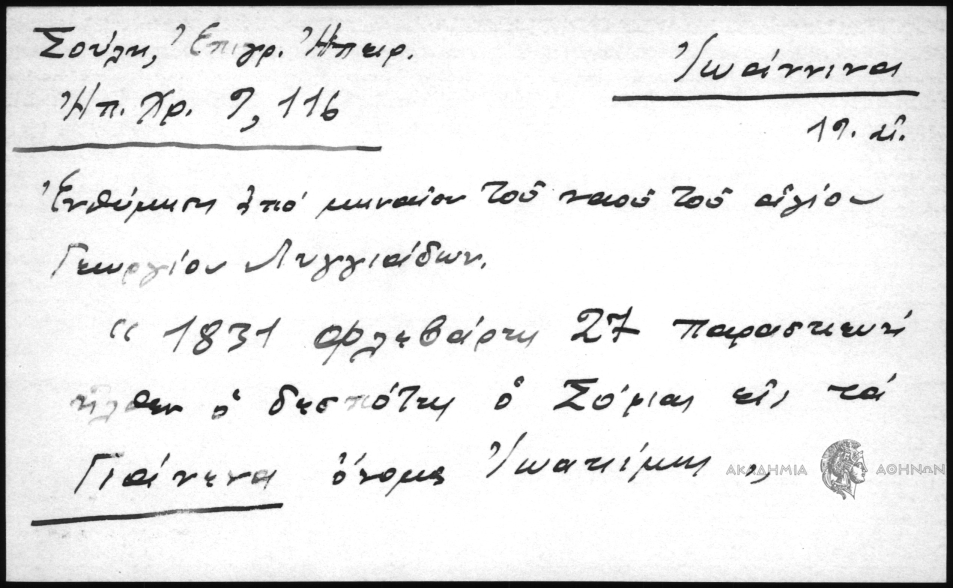 Σούλη, Ἐπιγρ. Ἠπειρ.
Ἠπ. Χρ. 9, 116
Ἰωάννινα
19. αἰ.
Ἐνθύμησις ἀπό μηναίον τοῦ ναοῦ τοῦ ἁγίου
Γεωργίου Λυγγιάδων.
“ 1831 φλεβάρης 27 παρασκευή
ἦλθεν ὁ δεσπότης ὁ Σόφιας εἰς τά
Γιάνενα ὄνομα Ἰωακίμης „
ΑΚΑΔΗΜΙΑ ΑΘΗΝΩΝ